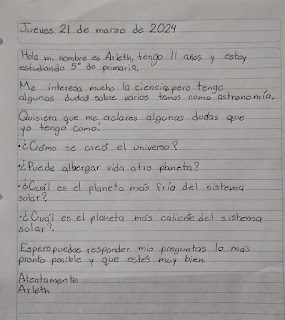 Jueves 21 de marzo de 2024
Hola mi nombre es Arleth, tengo 11 años y estoy
estudiando 5° de primaria.
Me interesa mucho la ciencia, pero tengo
algunas dudas sobre varios temas como astronomía.
Quisiera que me aclares algunas dudas que
yo tengo como:
•¿Cómo se creó el universo?
•¿Puede albergar vida otro planeta?
•¿Cuál es el planeta más fría del sistema
solar?
•¿Cuál es el planeta más caliente del sistema
solar?
Espero puedas responder mis preguntas lo más
pronto posible y que estés muy bien
Atentamente
Arleth